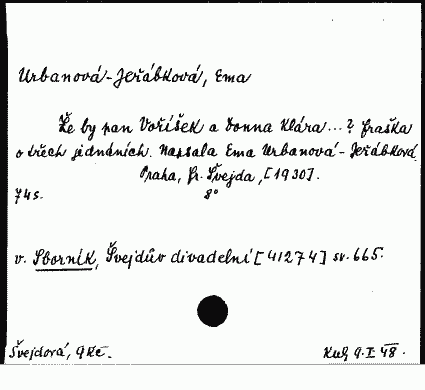 Urbanová-Jeřábková, Ema
Že by pan Voříšek a donna Klára...? Fraška
o třech jednáních. Napsala Ema Urbanová-Jeřábková.
Praha, Fr. Švejda, [1930].
74 s. 8°
v. Sborník, Švejdův divadelní [41274] sv. 665.
Švejdová, 9 Kč.
9.I.48.